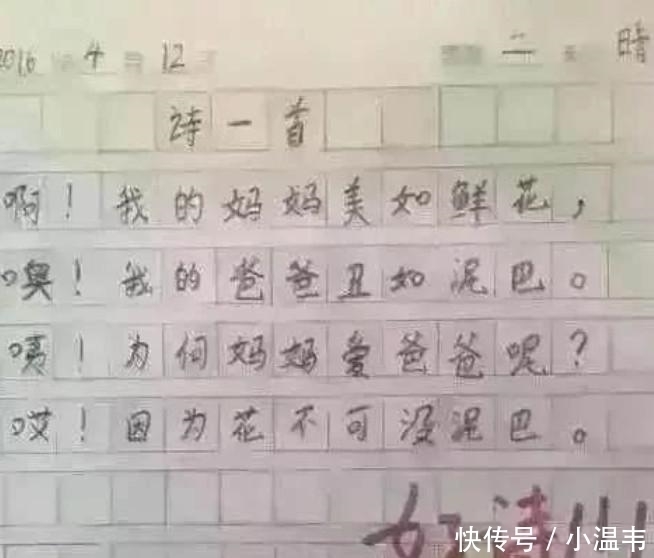 2016 4 12 二 晴
诗一首
啊！我的妈妈美如鲜花，
噢！我的爸爸丑如泥巴。
咦！为何妈妈爱爸爸呢？
哎！因为花不可没泥巴。
快传号／小温韦